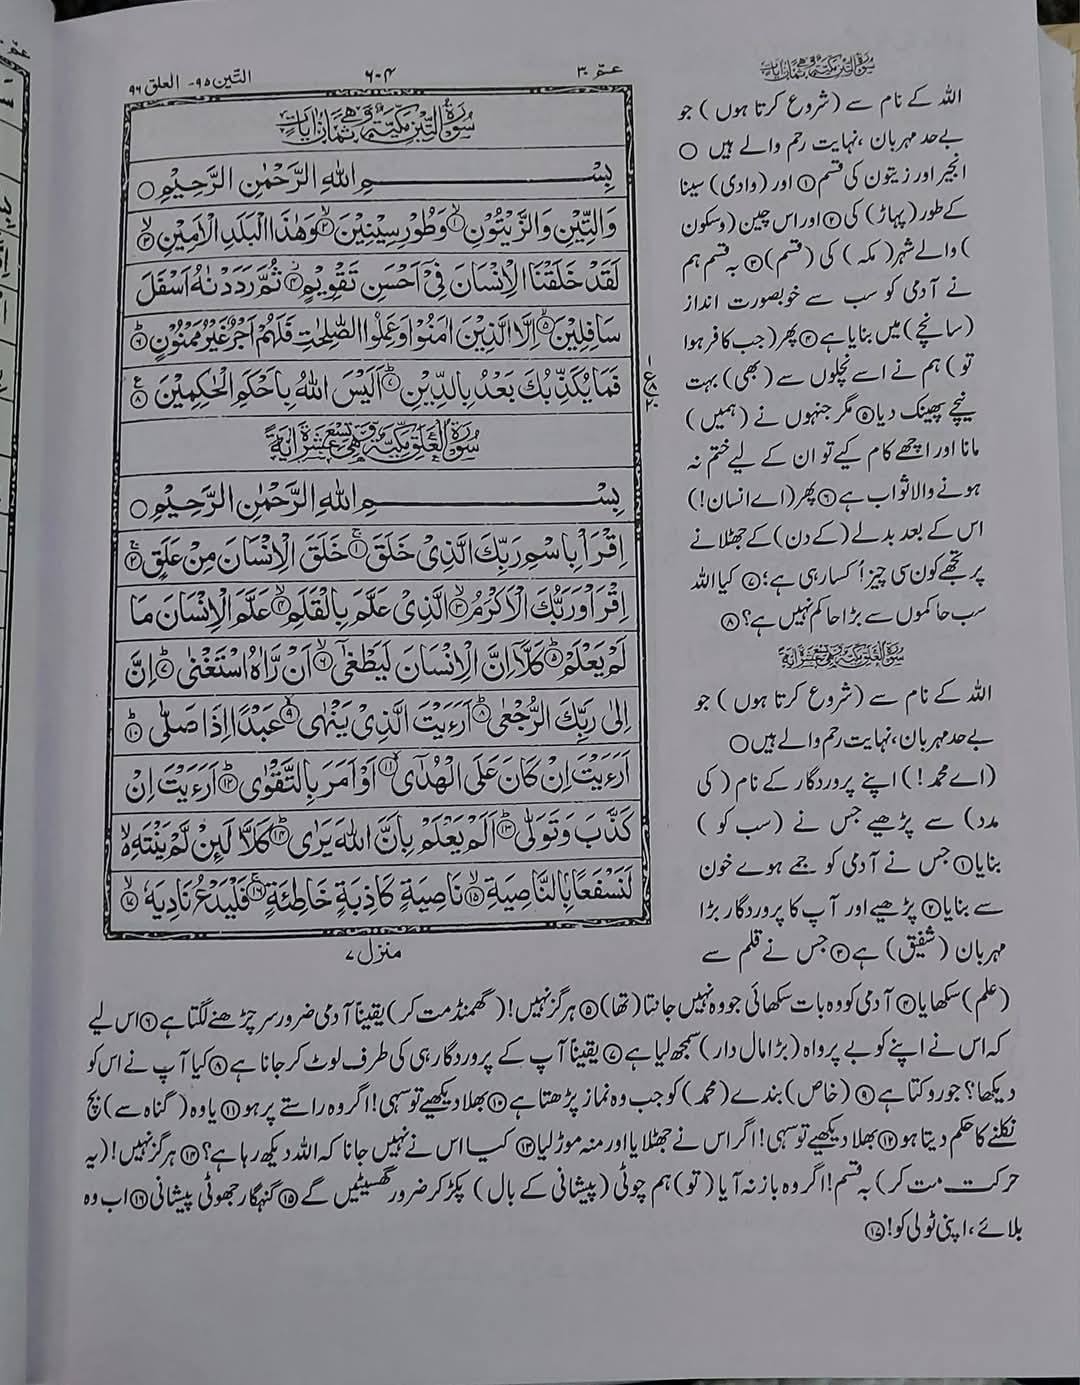 التّين ۹۵- العلق ۹۶
۶۰۴
عمّ ۳۰
سُوْرَةُ التِّيْنِ مَكِّيَّةٌ وَّهِيَ ثَمَانُ اٰيَاتٍ
بِسْمِ اللهِ الرَّحْمٰنِ الرَّحِيْمِ ○
وَالتِّيْنِ وَالزَّيْتُوْنِ ۙ﴿۱﴾ وَطُوْرِ سِيْنِيْنَ ۙ﴿۲﴾ وَهٰذَا الْبَلَدِ الْاَمِيْنِ ۙ﴿۳﴾
لَقَدْ خَلَقْنَا الْاِنْسَانَ فِيْٓ اَحْسَنِ تَقْوِيْمٍ ۡ﴿۴﴾ ثُمَّ رَدَدْنٰهُ اَسْفَلَ
سَافِلِيْنَ ۙ﴿۵﴾ اِلَّا الَّذِيْنَ اٰمَنُوْا وَعَمِلُوا الصّٰلِحٰتِ فَلَهُمْ اَجْرٌ غَيْرُ مَمْنُوْنٍ ؕ﴿۶﴾
فَمَا يُكَذِّبُكَ بَعْدُ بِالدِّيْنِ ؕ﴿۷﴾ اَلَيْسَ اللهُ بِاَحْكَمِ الْحٰكِمِيْنَ ﴿۸﴾
سُوْرَةُ الْعَلَقِ مَكِّيَّةٌ وَّهِيَ تِسْعَ عَشْرَةَ اٰيَةً
بِسْمِ اللهِ الرَّحْمٰنِ الرَّحِيْمِ ○
اِقْرَاْ بِاسْمِ رَبِّكَ الَّذِيْ خَلَقَ ۚ﴿۱﴾ خَلَقَ الْاِنْسَانَ مِنْ عَلَقٍ ۚ﴿۲﴾
اِقْرَاْ وَرَبُّكَ الْاَكْرَمُ ۙ﴿۳﴾ الَّذِيْ عَلَّمَ بِالْقَلَمِ ۙ﴿۴﴾ عَلَّمَ الْاِنْسَانَ مَا
لَمْ يَعْلَمْ ؕ﴿۵﴾ كَلَّآ اِنَّ الْاِنْسَانَ لَيَطْغٰٓى ۙ﴿۶﴾ اَنْ رَّاٰهُ اسْتَغْنٰى ؕ﴿۷﴾ اِنَّ
اِلٰى رَبِّكَ الرُّجْعٰى ؕ﴿۸﴾ اَرَءَيْتَ الَّذِيْ يَنْهٰى ۙ﴿۹﴾ عَبْدًا اِذَا صَلّٰى ؕ﴿۱۰﴾
اَرَءَيْتَ اِنْ كَانَ عَلَى الْهُدٰٓى ۙ﴿۱۱﴾ اَوْ اَمَرَ بِالتَّقْوٰى ؕ﴿۱۲﴾ اَرَءَيْتَ اِنْ
كَذَّبَ وَتَوَلّٰى ؕ﴿۱۳﴾ اَلَمْ يَعْلَمْ بِاَنَّ اللهَ يَرٰى ؕ﴿۱۴﴾ كَلَّا لَئِنْ لَّمْ يَنْتَهِ ۙ
لَنَسْفَعًا بِالنَّاصِيَةِ ۙ﴿۱۵﴾ نَاصِيَةٍ كَاذِبَةٍ خَاطِئَةٍ ۚ﴿۱۶﴾ فَلْيَدْعُ نَادِيَهٗ ۙ﴿۱۷﴾
منزل ۷
سُوْرَةُ التِّيْنِ مَكِّيَّةٌ وَّهِيَ ثَمَانُ اٰيَاتٍ
اللہ کے نام سے (شروع کرتا ہوں) جو
بے حد مہربان، نہایت رحم والے ہیں ○
انجیر اور زیتون کی قسم ۱ اور (وادی) سینا
کے طور (پہاڑ) کی ۲ اور اس چین (و سکون
) والے شہر (مکہ) کی (قسم) ۳ بہ قسم ہم
نے آدمی کو سب سے خوبصورت انداز
(سانچے) میں بنایا ہے ۴ پھر (جب کافر ہوا
تو) ہم نے اسے نچلوں سے (بھی) بہت
نیچے پھینک دیا ۵ مگر جنہوں نے (ہمیں)
مانا اور اچھے کام کیے تو ان کے لیے ختم نہ
ہونے والا ثواب ہے ۶ پھر (اے انسان!)
اس کے بعد بدلے (کے دن) کے جھٹلانے
پر تجھے کون سی چیز اُکسا رہی ہے؟ ۷ کیا اللہ
سب حاکموں سے بڑا حاکم نہیں ہے؟ ۸
سُوْرَةُ الْعَلَقِ مَكِّيَّةٌ وَّهِيَ تِسْعَ عَشْرَةَ اٰيَةً
اللہ کے نام سے (شروع کرتا ہوں) جو
بے حد مہربان، نہایت رحم والے ہیں ○
(اے محمد!) اپنے پروردگار کے نام (کی
مدد) سے پڑھیے جس نے (سب کو)
بنایا ۱ جس نے آدمی کو جمے ہوے خون
سے بنایا ۲ پڑھیے اور آپ کا پروردگار بڑا
مہربان (شفیق) ہے ۳ جس نے قلم سے
(علم) سکھایا ۴ آدمی کو وہ بات سکھائی جو وہ نہیں جانتا (تھا) ۵ ہرگز نہیں! (گھمنڈ مت کر) یقیناً آدمی ضرور سر چڑھنے لگتا ہے ۶ اس لیے
کہ اس نے اپنے کو بے پرواہ (بڑا مال دار) سمجھ لیا ہے ۷ یقیناً آپ کے پروردگار ہی کی طرف لوٹ کر جانا ہے ۸ کیا آپ نے اس کو
دیکھا؟ جو روکتا ہے ۹ (خاص) بندے (محمد) کو جب وہ نماز پڑھتا ہے ۱۰ بھلا دیکھیے تو سہی! اگر وہ راستے پر ہو ۱۱ یا وہ (گناہ سے) بچ
نکلنے کا حکم دیتا ہو ۱۲ بھلا دیکھیے تو سہی! اگر اس نے جھٹلایا اور منہ موڑ لیا ۱۳ کیا اس نے نہیں جانا کہ اللہ دیکھ رہا ہے؟ ۱۴ ہرگز نہیں! (یہ
حرکت مت کر) بہ قسم! اگر وہ باز نہ آیا (تو) ہم چوٹی (پیشانی کے بال) پکڑ کر ضرور گھسیٹیں گے ۱۵ گنہگار جھوٹی پیشانی ۱۶ اب وہ
بلائے، اپنی ٹولی کو! ۱۷